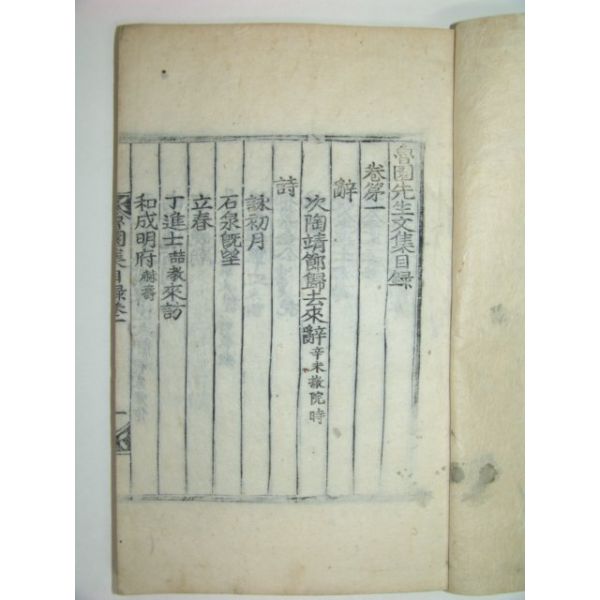 魯園先生文集目録
卷第一
辭
次陶靖節歸去來辭 辛未撤院時
詩
詠初月
石泉旣望
立春
丁進士喆教來訪
和成明府
園集目録卷一